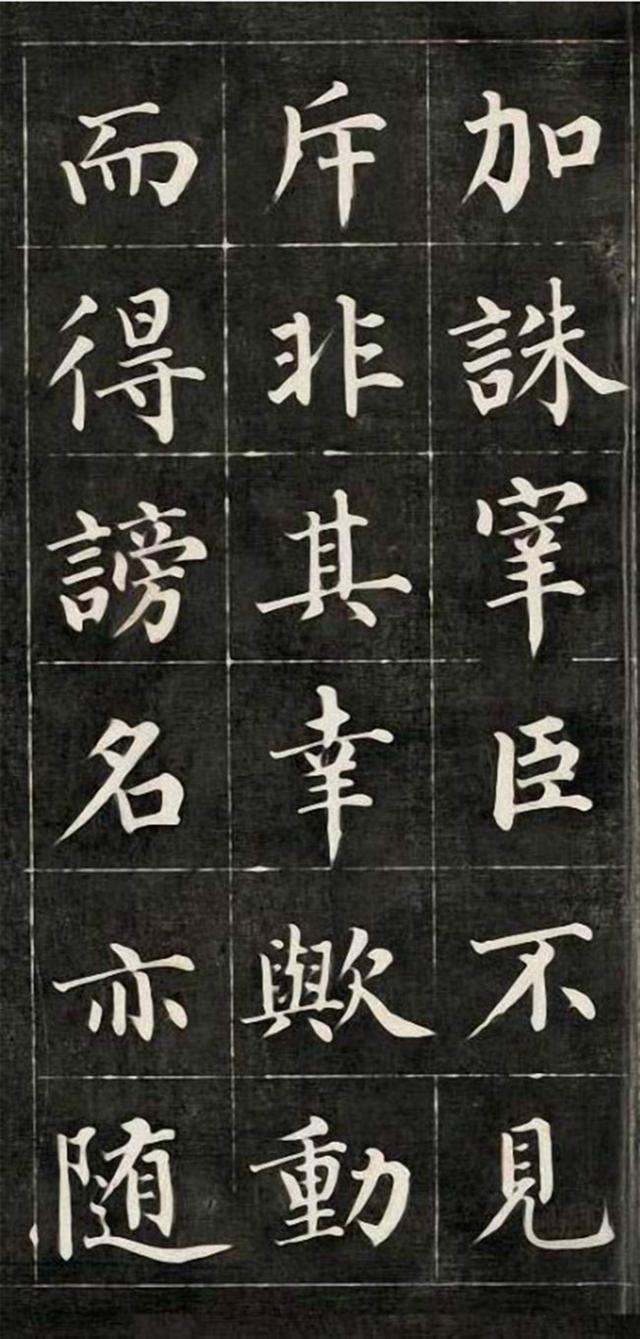 加誅宰臣不見
斥非其幸歟動
而得謗名亦随